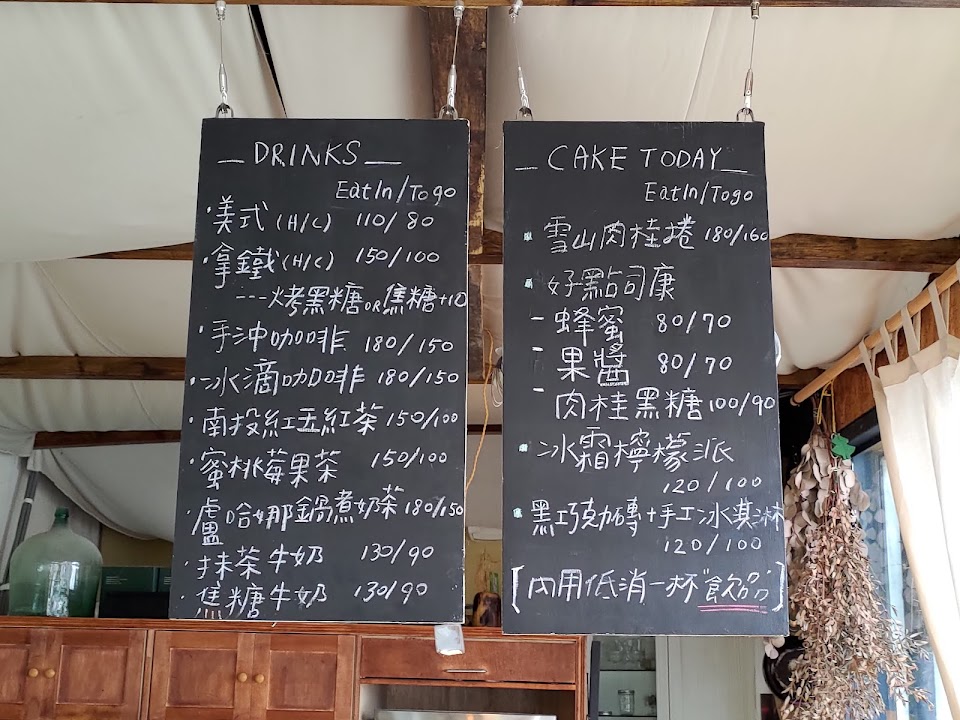 DRINKS
EatIn/Togo
·美式(H/C) 110/80
·拿鐵(H/C) 150/100
---烤黑糖OR焦糖+10
·手沖咖啡 180/150
·冰滴咖啡 180/150
·南投紅玉紅茶 150/100
·蜜桃莓果茶 150/100
·盧哈娜鍋煮奶茶 180/150
·抹茶牛奶 130/90
·焦糖牛奶 130/90
CAKE TODAY
EatIn/Togo
雪山肉桂捲 180/160
好點司康
-蜂蜜 80/70
-果醬 80/70
-肉桂黑糖 100/90
冰霜檸檬派
120/100
黑巧克力磚+手工冰淇淋
120/100
[內用低消一杯"飲品"]